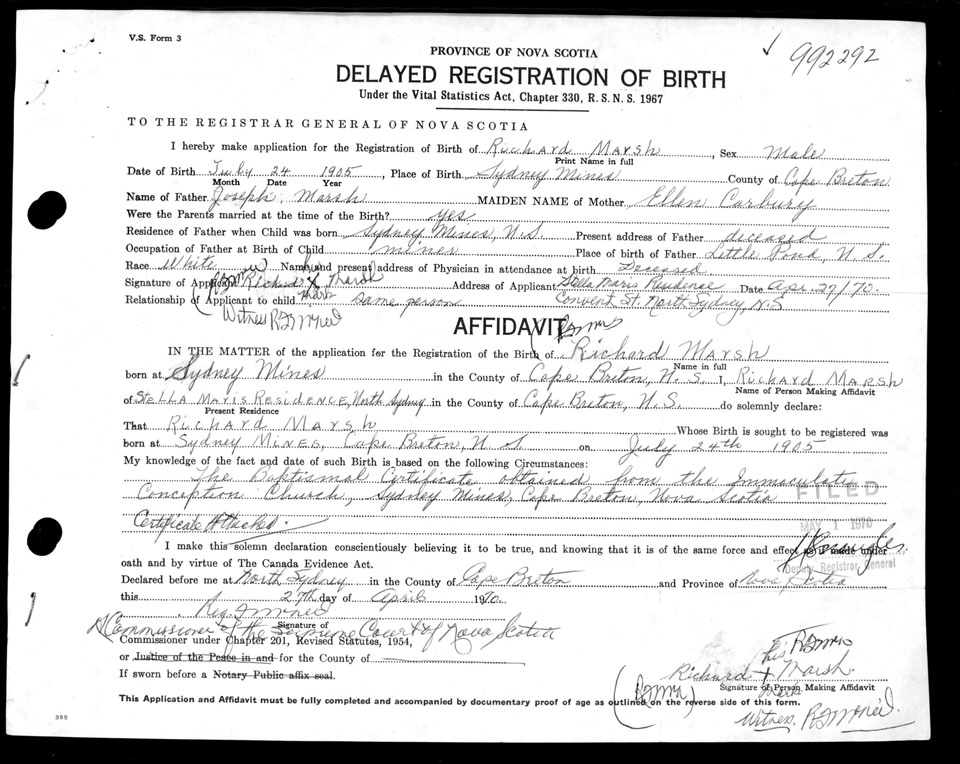 V.S. Form 3
992292
PROVINCE OF NOVA SCOTIA
DELAYED REGISTRATION OF BIRTH
Under the Vital Statistics Act, Chapter 330, R.S.N.S. 1967
TO THE REGISTRAR GENERAL OF NOVA SCOTIA
I hereby make application for the Registration of Birth of Richard Marsh, Sex Male
Print Name in full
Date of Birth July 24 1905, Place of Birth Sydney Mines County of Cape Breton
Month Date Year
Name of Father Joseph Marsh MAIDEN NAME of Mother Ellen Carbury
Were the Parents married at the time of the Birth? yes
Residence of Father when Child was born Sydney Mines, N.S. Present address of Father deceased
Occupation of Father at Birth of Child mines Place of birth of Father Little Pond, N.S.
Race White Name and present address of Physician in attendance at birth Deceased
Signature of Applicant Richard his X Marsh Address of Applicant Stella Maris Residence Date Apr. 27/70.
Relationship of Applicant to child mark same person Convent St. North Sydney, N.S.
Witness R J McNeil
AFFIDAVIT
IN THE MATTER of the application for the Registration of the Birth of Richard Marsh
Name in full
born at Sydney Mines in the County of Cape Breton, N.S. I, Richard Marsh
Name of Person Making Affidavit
of Stella Maris Residence, North Sydney in the County of Cape Breton, N.S. do solemnly declare:
Present Residence
That Richard Marsh Whose Birth is sought to be registered was
born at Sydney Mines, Cape Breton, N S on July 24th 1905
My knowledge of the fact and date of such Birth is based on the following Circumstances:
The Baptismal Certificate obtained from the Immaculate
Conception Church, Sydney Mines, Cape Breton, Nova Scotia
FILED
Certificate Attached.
MAY 1 1970
I make this solemn declaration conscientiously believing it to be true, and knowing that it is of the same force and effect as if made under
Deputy Registrar General
oath and by virtue of The Canada Evidence Act.
Declared before me at North Sydney in the County of Cape Breton and Province of Nova Scotia
this 27th day of April 1970.
Reg. J McNeil
Signature of
A Commissioner of the Supreme Court of Nova Scotia
Commissioner under Chapter 201, Revised Statutes, 1954,
or Justice of the Peace in and for the County of
If sworn before a Notary Public affix seal.
Richard his X mark Marsh.
Signature of Person Making Affidavit
This Application and Affidavit must be fully completed and accompanied by documentary proof of age as outlined on the reverse side of this form.
Witness. R J McNeil.
385